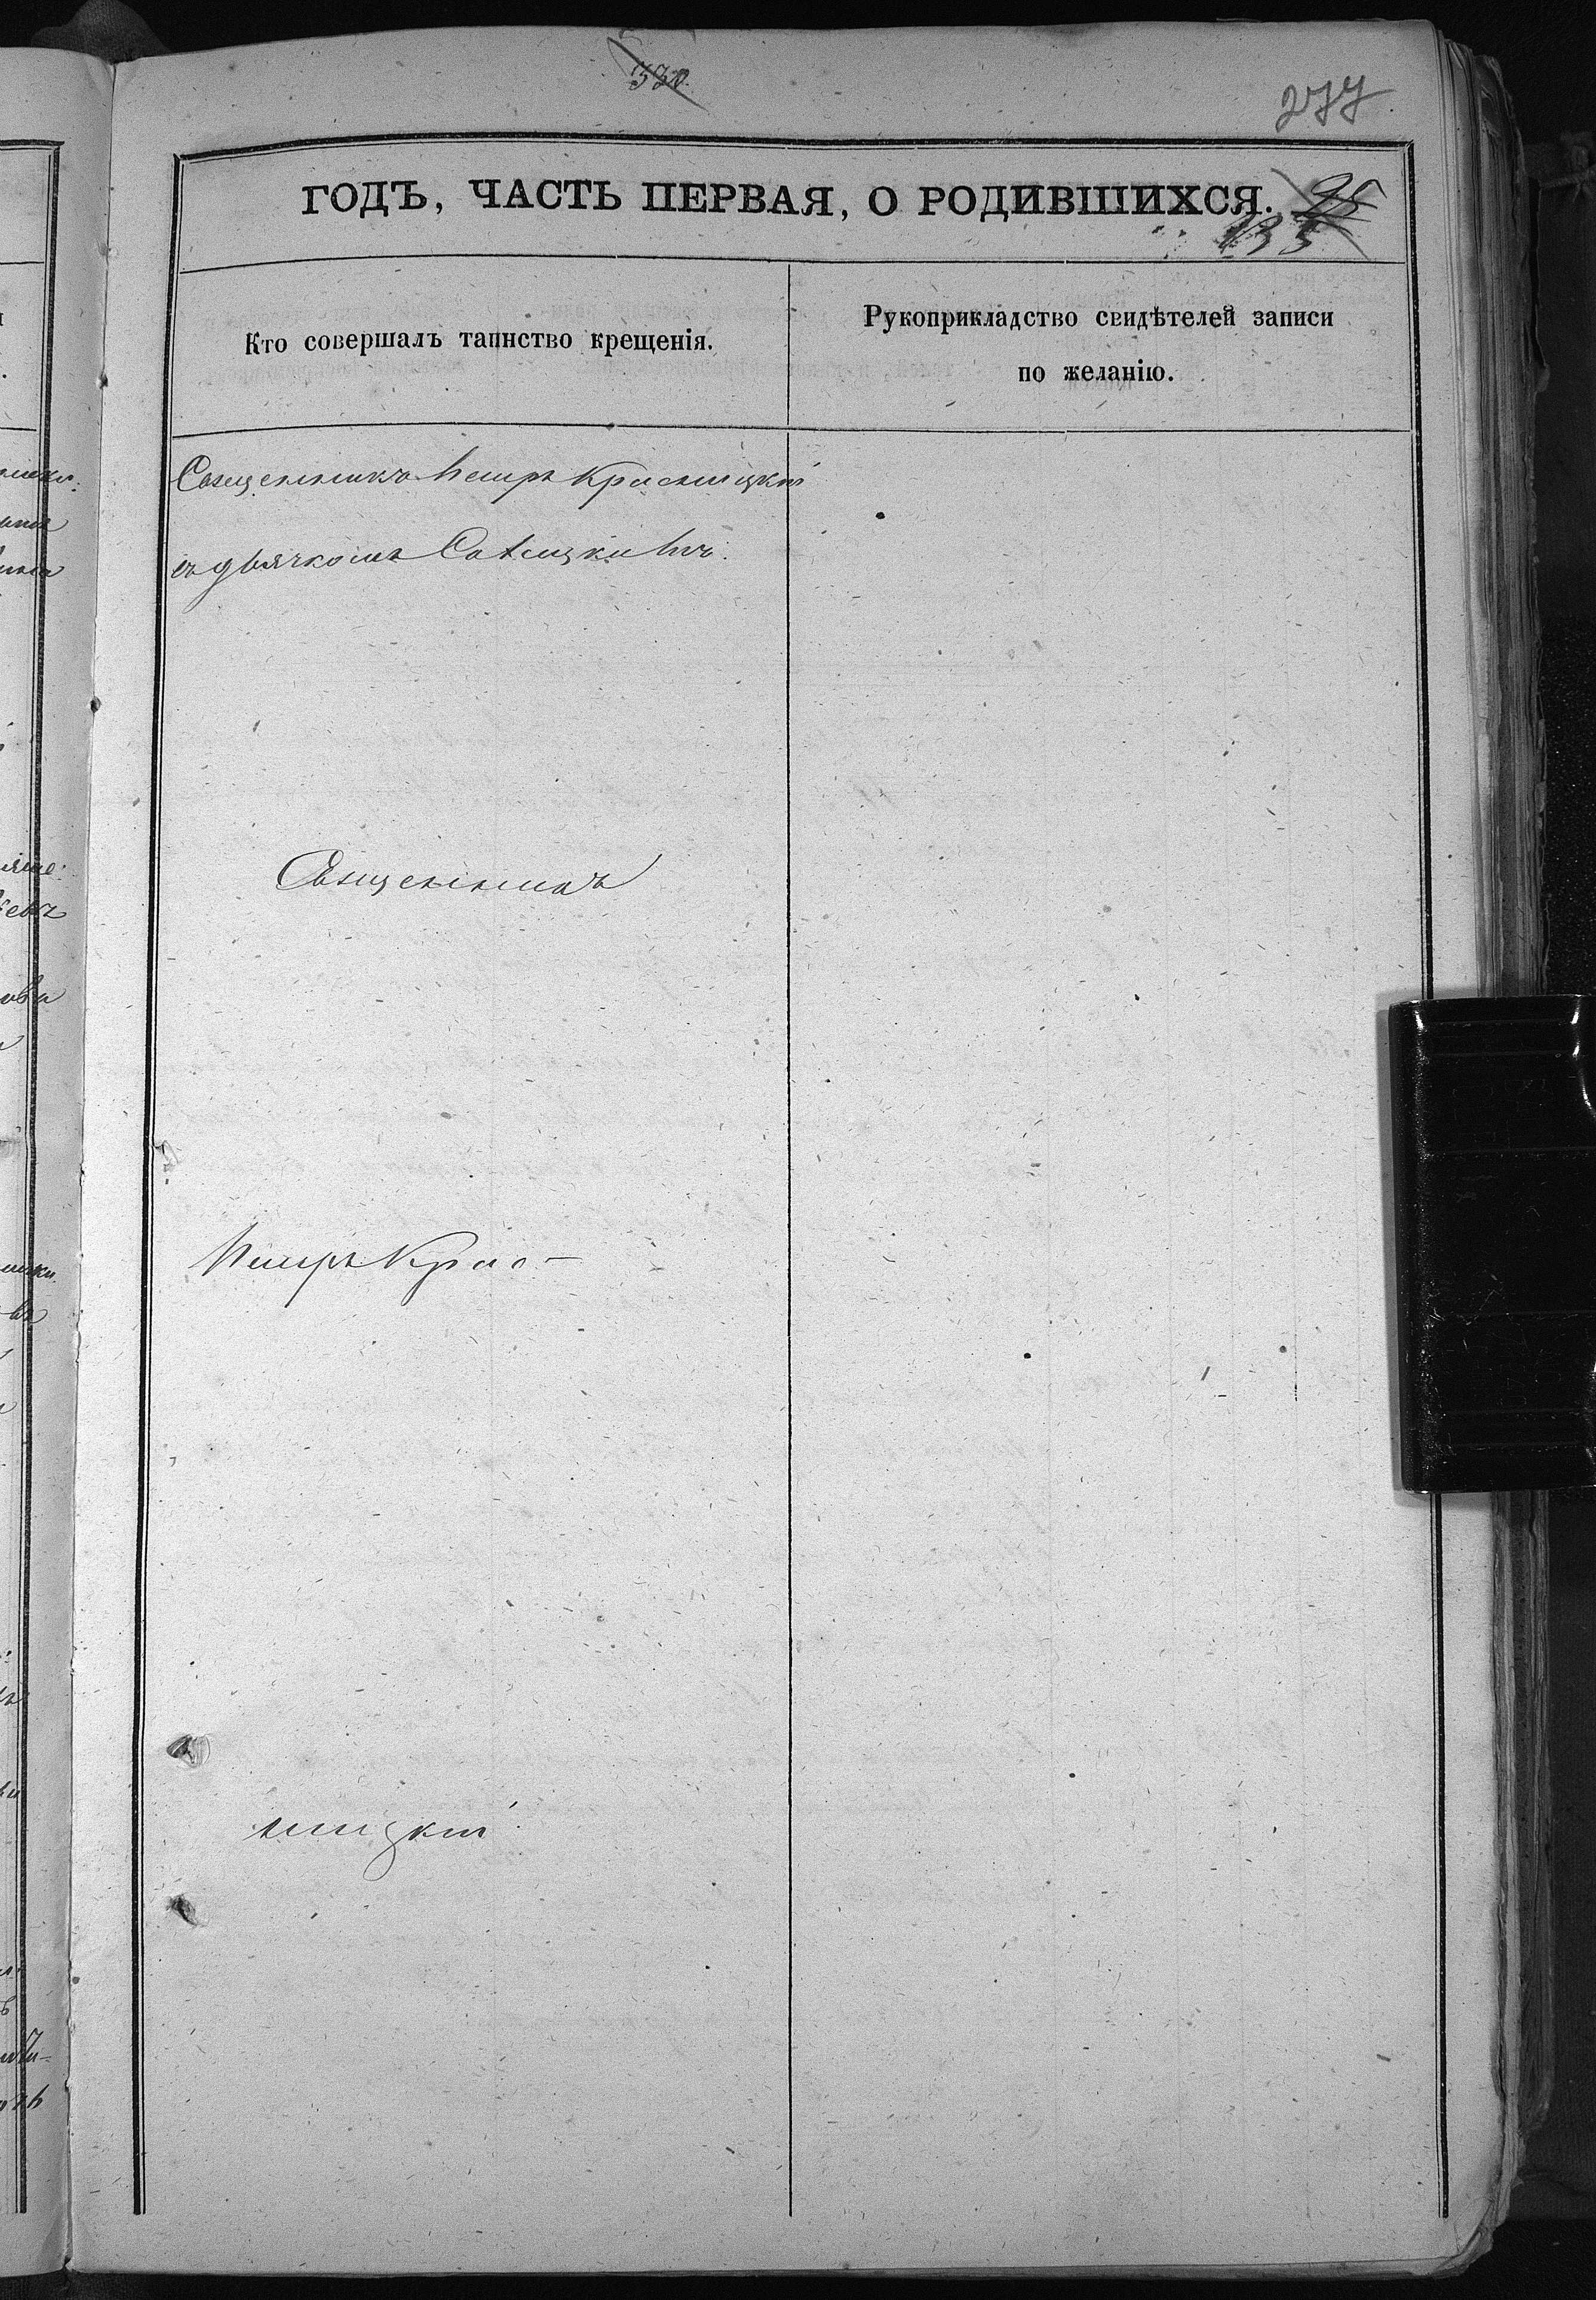 330.
277
ГОДЪ, ЧАСТЬ ПЕРВАЯ, О РОДИВШИХСЯ. 95
135
Кто совершалъ таинство крещенія.
Рукоприкладство свидѣтелей записи
по желанію.
Священникъ Петръ Красницкій
съ дьячкомъ
Священникъ
Петръ Крас-
ницкій